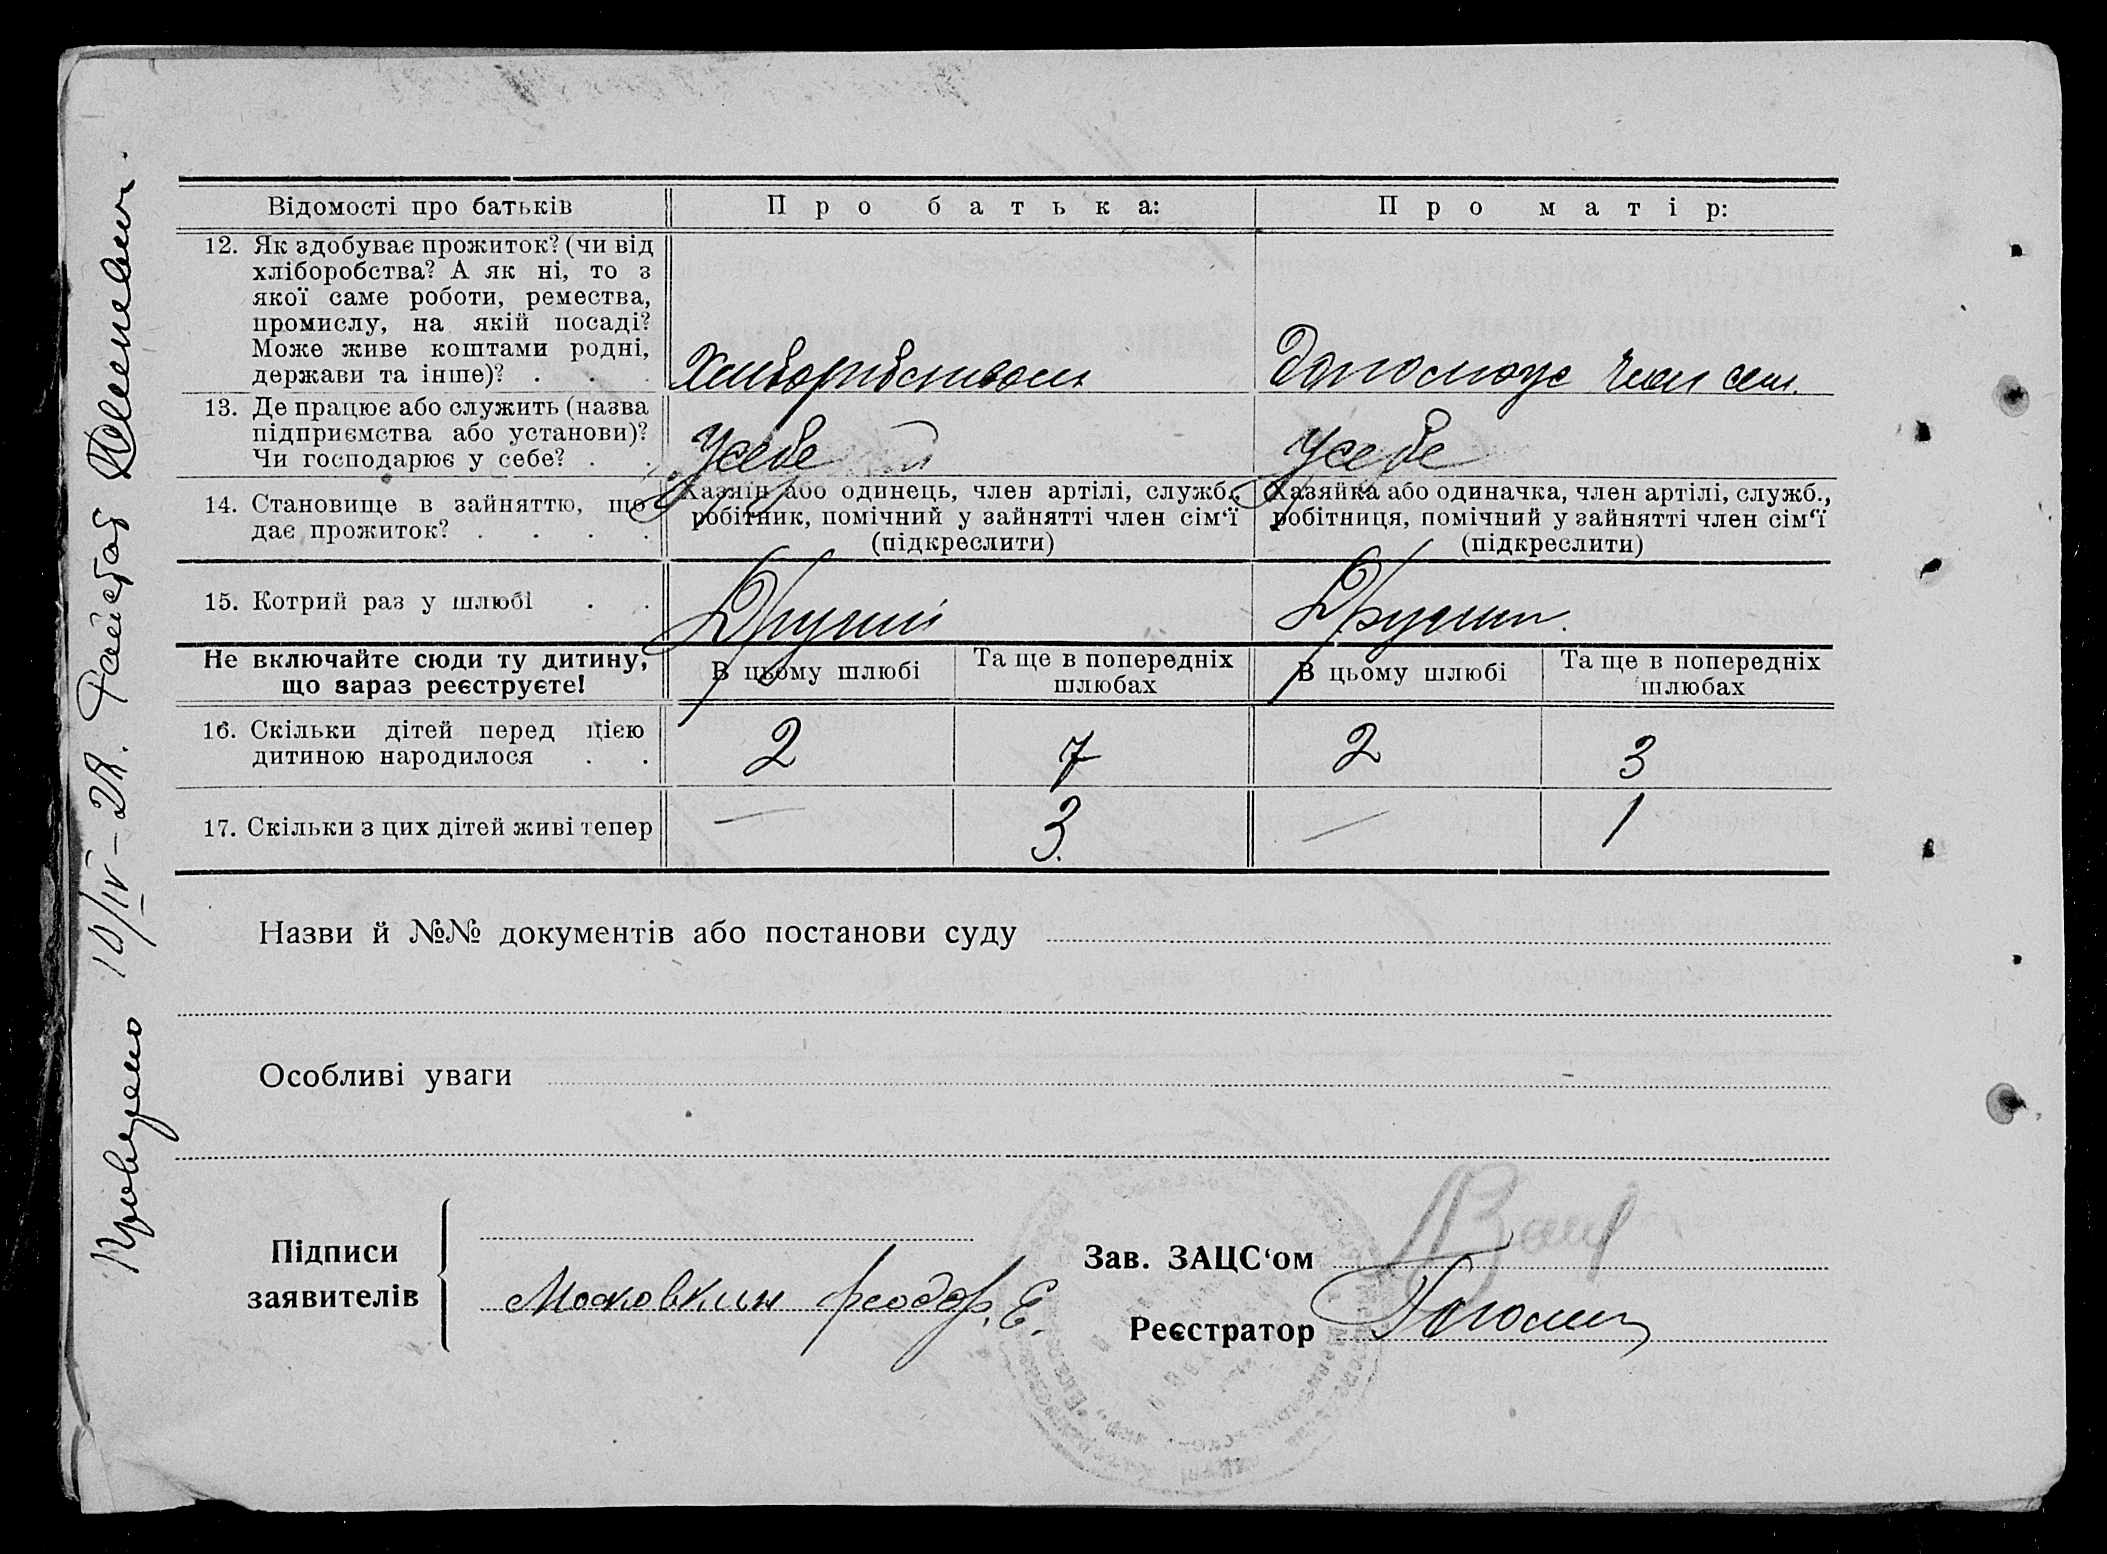 Відомості про батьків
Про батька:
Про матір:
12. Як здобуває прожиток? (чи від
хліборобства? А як ні, то з
якої саме роботи, ремества,
промислу, на якій посаді?
Може живе коштами родні,
держави та інше)? . . .
Хліборобством
допомога член сем.
13. Де працює або служить (назва
підприємства або установи)?
Чи господарює у себе? . .
Усебе
Усебе
14. Становище в зайняттю, що
дає прожиток? . . . .
Хазяїн або одинець, член артілі, служб.,
робітник, помічний у зайнятті член сім'ї
(підкреслити)
Хазяйка або одиначка, член артілі, служб.,
робітниця, помічний у зайнятті член сім'ї
(підкреслити)
15. Котрий раз у шлюбі . .
Другий
Другий.
Не включайте сюди ту дитину,
що зараз реєструєте!
В цьому шлюбі
Та ще в попередніх
шлюбах
В цьому шлюбі
Та ще в попередніх
шлюбах
16. Скільки дітей перед цією
дитиною народилося . .
2
7
2
3
17. Скільки з цих дітей живі тепер
—
3.
—
1
Назви й №№ документів або постанови суду
Особливі уваги
Підписи
заявителів
Московкин Феодор. Е.
Зав. ЗАЦС'ом
Реєстратор
Проверено 10/IV-28.